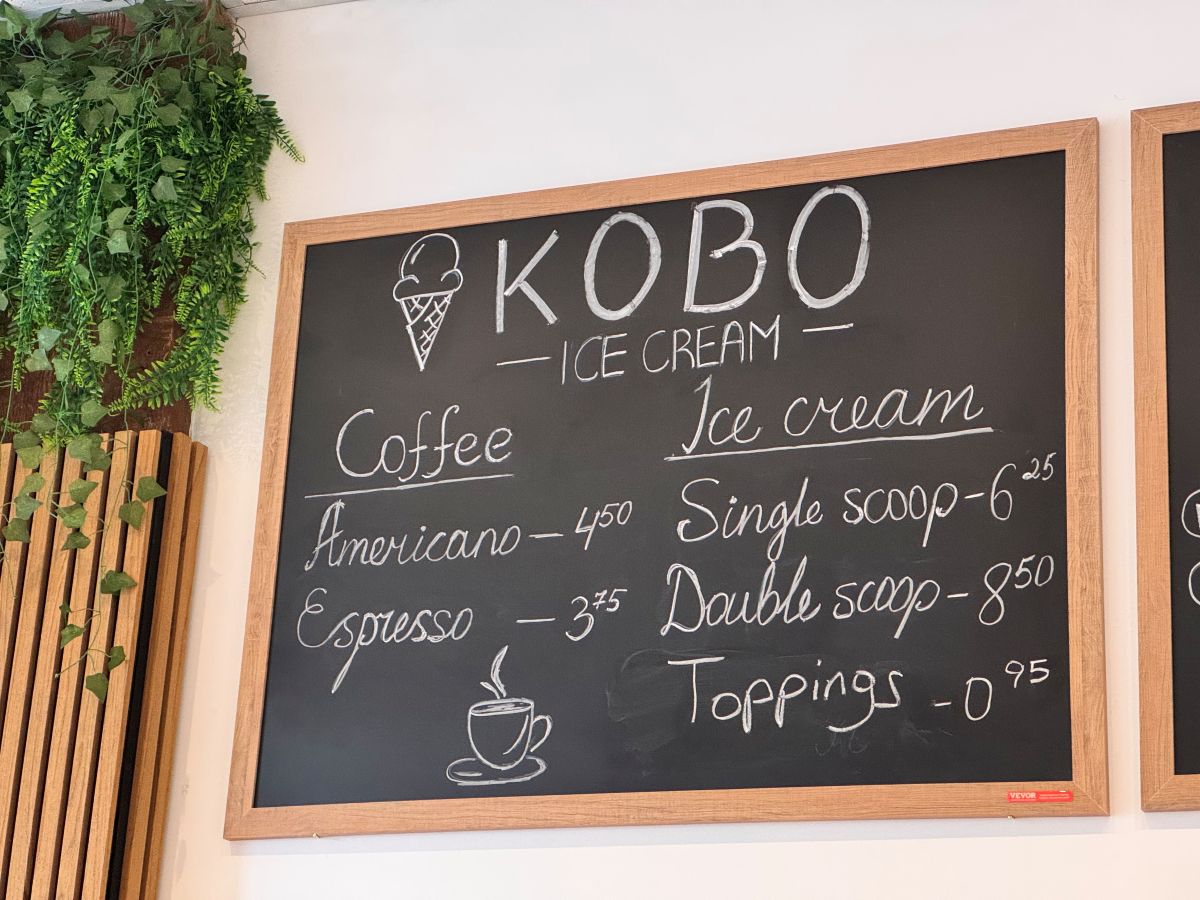 KOBO
— ICE CREAM —
Coffee
Americano — 4⁵⁰
Espresso — 3⁷⁵
Ice cream
Single scoop - 6²⁵
Double scoop - 8⁵⁰
Toppings - 0⁹⁵
VEVOR